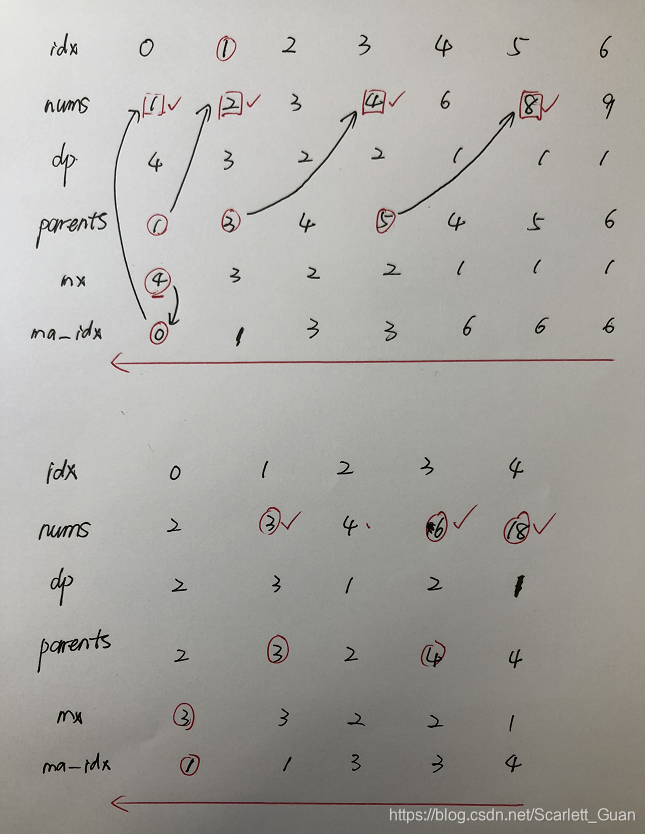 idx 0 1 2 3 4 5 6
nums 1 2 3 4 6 8 9
dp 4 3 2 2 1 1 1
parents 1 3 4 5 4 5 6
mx 4 3 2 2 1 1 1
ma_idx 0 1 3 3 6 6 6
idx 0 1 2 3 4
nums 2 3 4 6 18
dp 2 3 1 2 1
parents 2 3 2 4 4
mx 3 3 2 2 1
ma_idx 1 1 3 3 4
https://blog.csdn.net/Scarlett_Guan